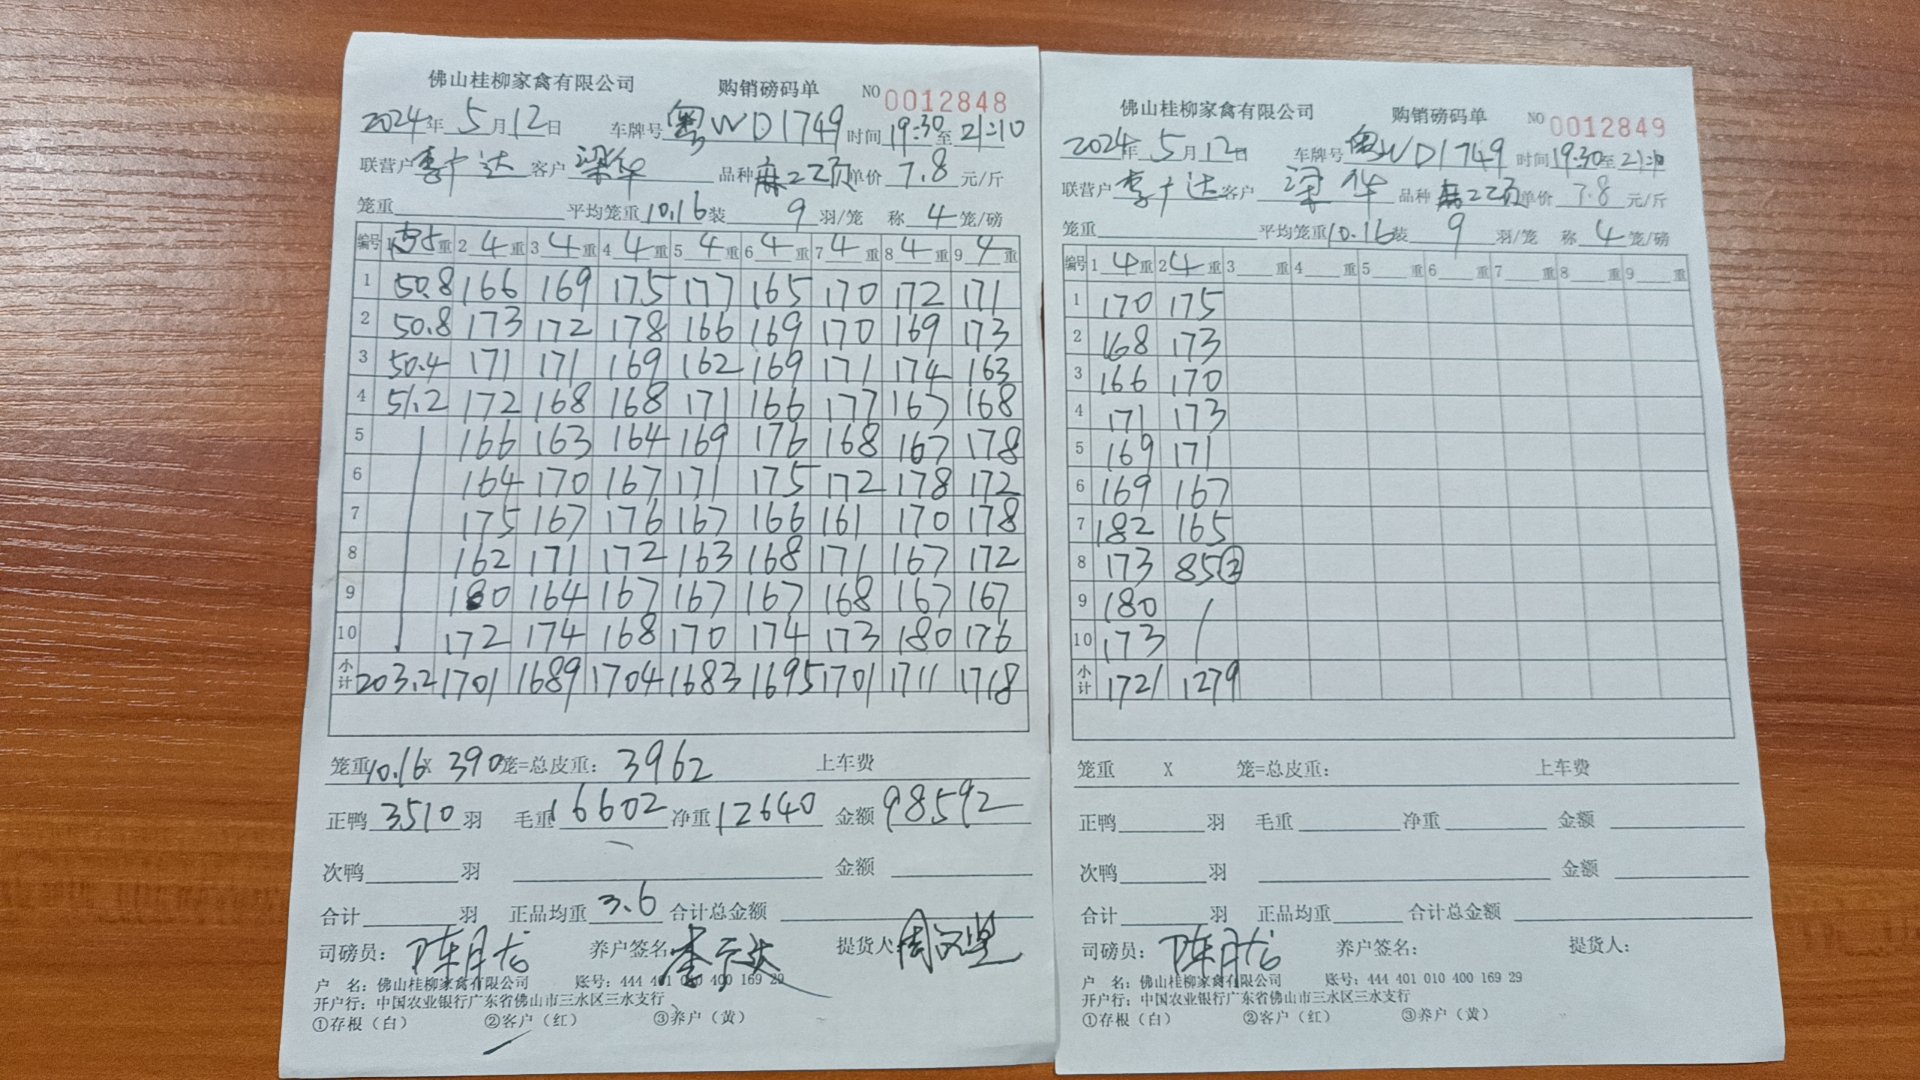 佛山桂柳家禽有限公司 购销磅码单 NO 0012848
2024年 5月12日 车牌号 粤WD1749 时间 19:30至21:10
联营户 李 达 客户 梁华 品种 麻22顶 单价 7.8 元/斤
笼重 平均笼重 10.16 装 9 羽/笼 称 4 笼/磅
编号 1 空5重 2 4 重 3 4 重 4 4 重 5 4 重 6 4 重 7 4 重 8 4 重 9 4 重
1 50.8 166 169 175 177 165 170 172 171
2 50.8 173 172 178 166 169 170 169 173
3 50.4 171 171 169 162 169 171 174 163
4 51.2 172 168 168 171 166 177 167 168
5 166 163 164 169 176 168 167 178
6 164 170 167 171 175 172 178 172
7 175 167 176 167 166 161 170 178
8 162 171 172 163 168 171 167 172
9 180 164 167 167 167 168 167 167
10 172 174 168 170 174 173 180 176
小计 203.2 1701 1689 1704 1683 1695 1701 1711 1718
笼重 10.16 X 390 笼=总皮重: 3962 上车费
正鸭 3510 羽 毛重 16602 净重 12640 金额 98592
次鸭 羽 金额
合计 羽 正品均重 3.6 合计总金额
司磅员: 陈月龙 养户签名: 李 达 提货人: 周
户 名: 佛山桂柳家禽有限公司 账号: 444 401 010 400 169 29
开户行: 中国农业银行广东省佛山市三水区三水支行
①存根(白) ②客户(红) ③养户(黄)
佛山桂柳家禽有限公司 购销磅码单 NO 0012849
2024年 5月12日 车牌号 粤WD1749 时间 19:30至21:10
联营户 李 达 客户 梁华 品种 麻22顶 单价 7.8 元/斤
笼重 平均笼重 10.16 装 9 羽/笼 称 4 笼/磅
编号 1 4 重 2 4 重 3 重 4 重 5 重 6 重 7 重 8 重 9 重
1 170 175
2 168 173
3 166 170
4 171 173
5 169 171
6 169 167
7 182 165
8 173 85②
9 180
10 173
小计 1721 1279
笼重 X 笼=总皮重:  上车费
正鸭 羽 毛重 净重 金额
次鸭 羽 金额
合计 羽 正品均重 合计总金额
司磅员: 陈月龙 养户签名: 提货人:
户 名: 佛山桂柳家禽有限公司 账号: 444 401 010 400 169 29
开户行: 中国农业银行广东省佛山市三水区三水支行
①存根(白) ②客户(红) ③养户(黄)